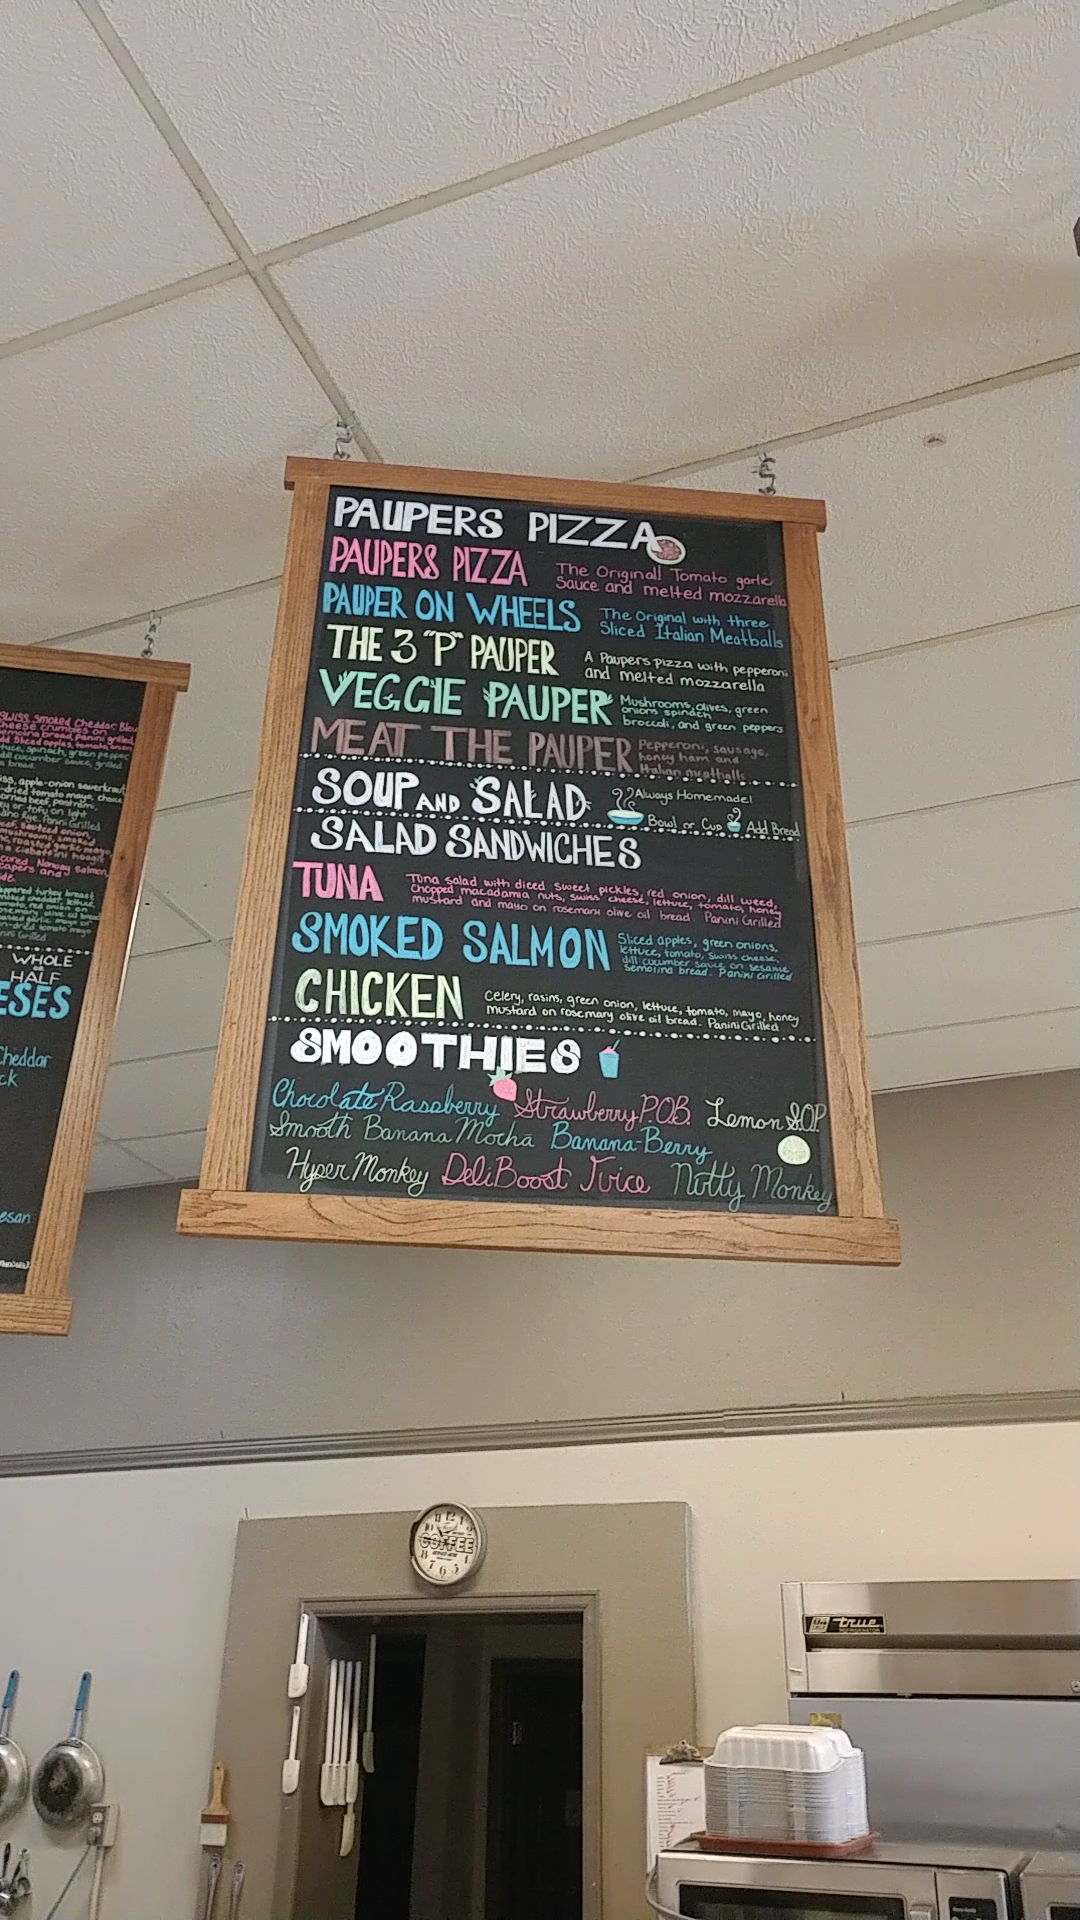 PAUPERS PIZZA
PAUPERS PIZZA
The Original! Tomato garlic
Sauce and melted mozzarella
PAUPER ON WHEELS
The Original with three
Sliced Italian Meatballs
THE 3 "P" PAUPER
A Paupers pizza with pepperoni
and melted mozzarella
VEGGIE PAUPER
Mushrooms, olives, green
onions spinach
broccoli, and green peppers
MEAT THE PAUPER
Pepperoni, sausage,
honey ham and
Italian meatballs
SOUP AND SALAD
Always Homemade!
Bowl or Cup Add Bread
SALAD SANDWICHES
TUNA
Tuna salad with diced sweet pickles, red onion, dill weed,
Chopped macadamia nuts, swiss cheese, lettuce, tomato, honey
mustard and mayo on rosemary olive oil bread. Panini Grilled
SMOKED SALMON
Sliced apples, green onions,
lettuce, tomato, swiss cheese,
dill cucumber sauce on sesame
semolina bread. Panini Grilled
CHICKEN
Celery, rasins, green onion, lettuce, tomato, mayo, honey
mustard on rosemary olive oil bread. Panini Grilled
SMOOTHIES
Chocolate Raspberry Strawberry P.O.B. Lemon S.O.P.
Smooth Banana Mocha Banana-Berry
Hyper Monkey Deli Boost Juice Nutty Monkey
Swiss, Smoked Cheddar, Bleu
Cheese crumbles on
semolina bread, Panini grilled
Add Sliced apples, tomato, onion
spinach, green pepper
dill cucumber sauce, grilled
bread
apple-onion sauerkraut
dried tomato mayo, choice
corned beef, pastrami,
or tofu on light
Rye. Panini Grilled
sauteed onion,
mushrooms, smoked
roasted garlic mayo
hoagie
cured Norway salmon,
capers and
peppered turkey breast
smoked cheddar, lettuce,
tomato, red onion on
rosemary olive oil bread
roasted garlic mayo or
dried tomato mayo
Grilled
WHOLE
OR
HALF
Cheddar
COFFEE
true
REFRIGERATOR